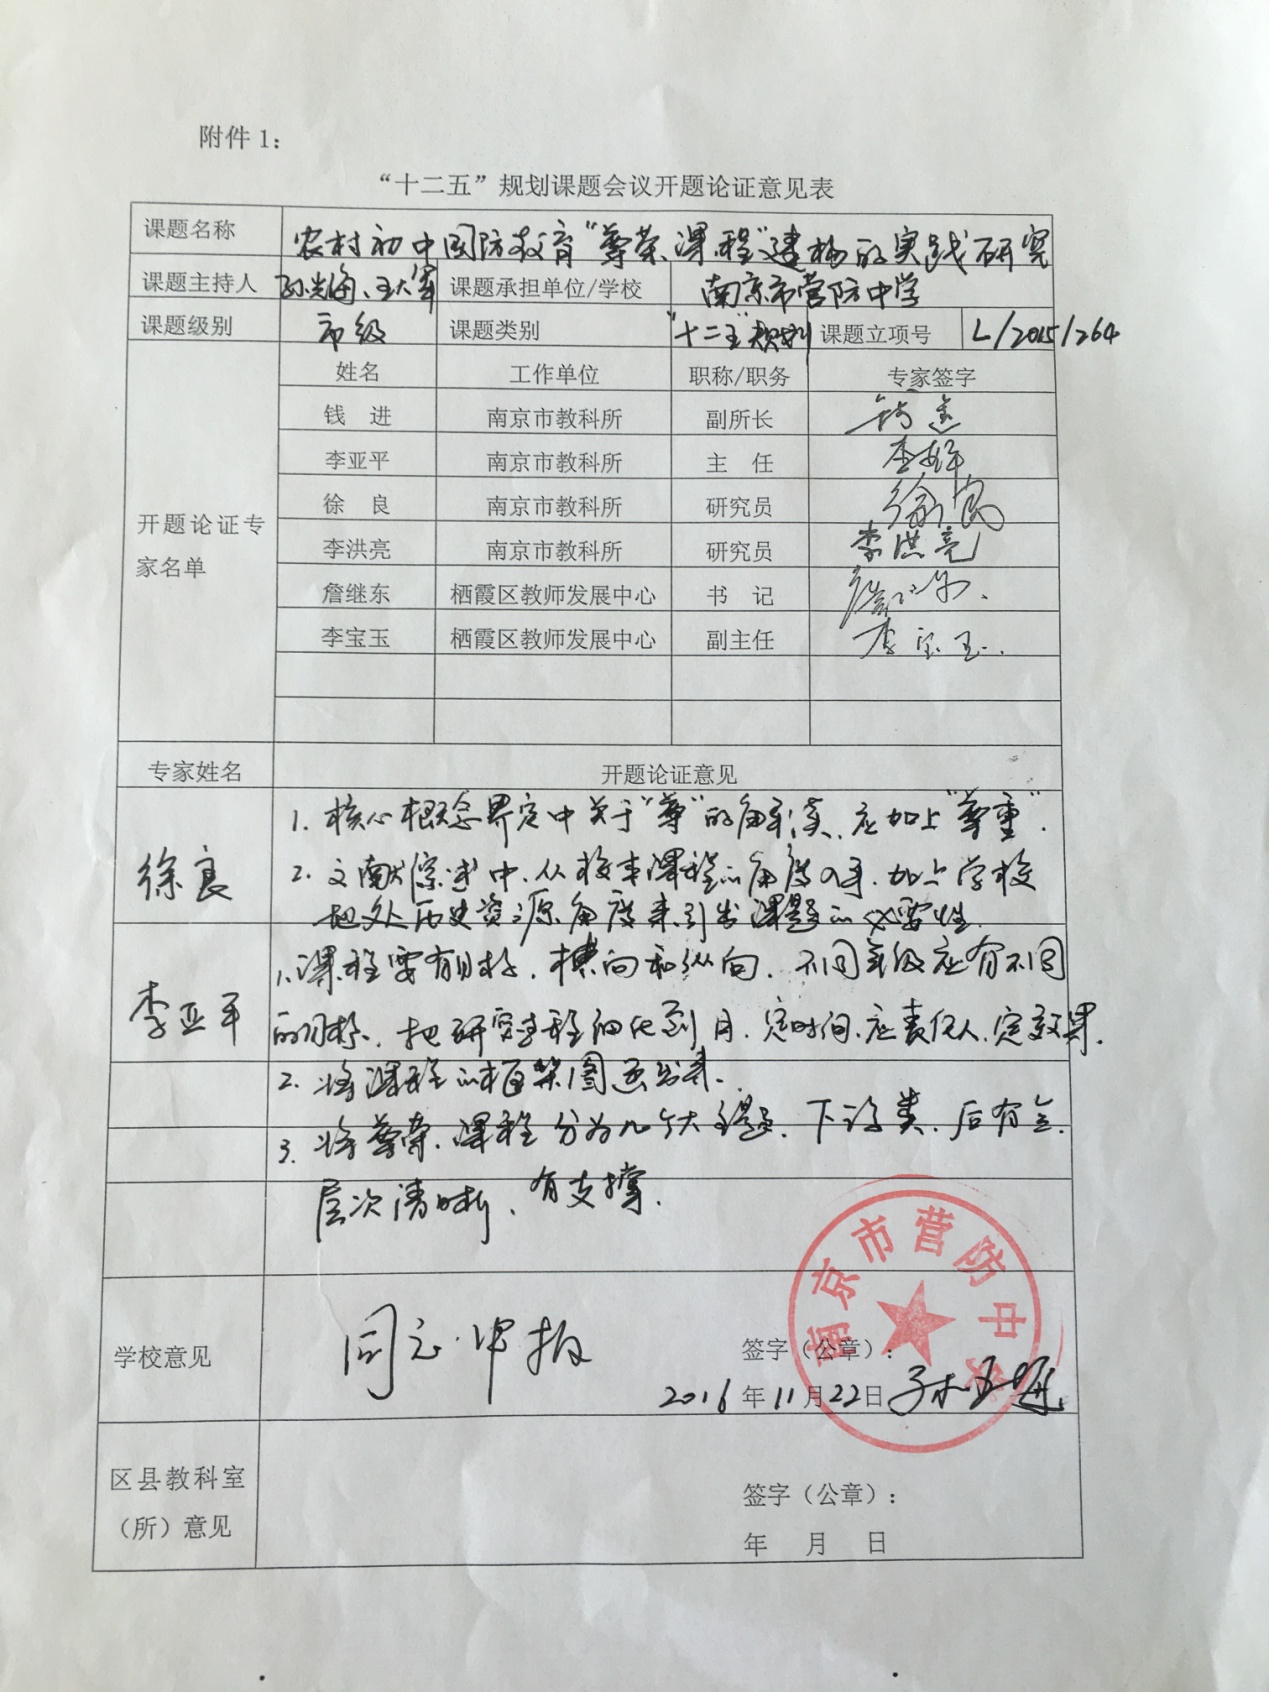 附件 1：
“十二五”规划课题会议开题论证意见表
课题名称 农村初中国防教育“尊荣课程”建构的实践研究
课题主持人 孙光海、王大军 课题承担单位/学校 南京市营防中学
课题级别 市级 课题类别 “十二五”规划 课题立项号 L/2015/264
姓名 工作单位 职称/职务 专家签字
钱 进 南京市教科所 副所长 钱进
李亚平 南京市教科所 主 任 李亚平
徐 良 南京市教科所 研究员 徐良
开题论证专
家名单
李洪亮 南京市教科所 研究员 李洪亮
詹继东 栖霞区教师发展中心 书 记
李宝玉 栖霞区教师发展中心 副主任 李宝玉
专家姓名 开题论证意见
徐良
1. 核心概念界定中关于“尊”的解读，应加上“尊重”.
2. 文献综述中，从校本课程的角度入手，加上学校
地处历史资源角度来引出课题的必要性.
李亚平
1. 课程要有目标，横向和纵向，不同年级应有不同
的目标，把研究过程细化到月，定时间，应责任人，定效果.
2. 将课程的框架图画出来.
3. 将尊荣课程分为几个大主题，下设类，后有
层次清晰，有支撑.
学校意见 同意申报 签字（公章）：
2016 年 11 月 22 日
南京市营防中学
区县教科室
（所）意见
签字（公章）：
年 月 日